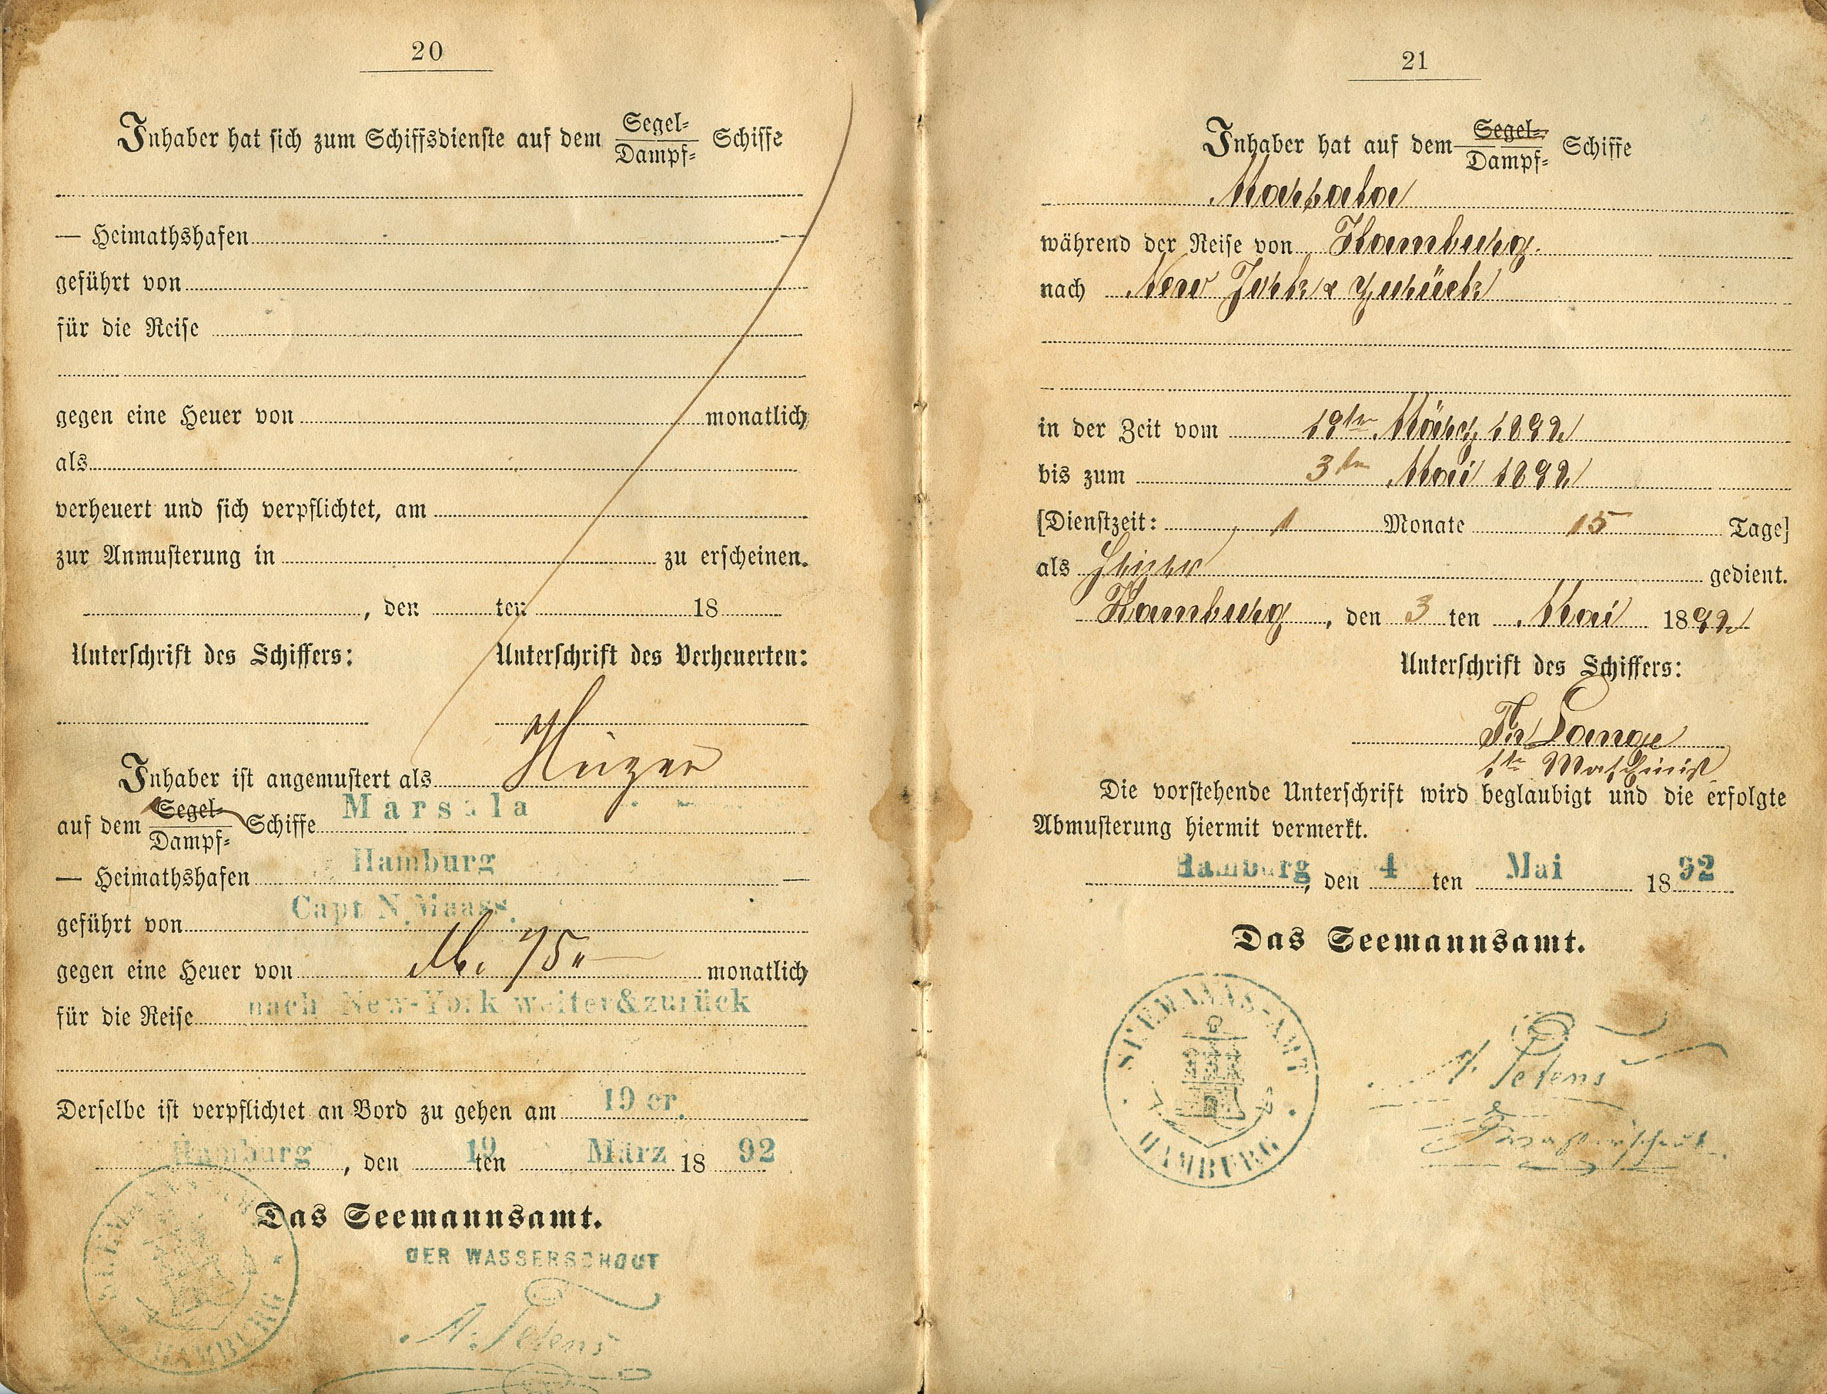 20
Inhaber hat sich zum Schiffsdienste auf dem Segel-
Dampf- Schiffe
— Heimathshafen —
geführt von
für die Reise
gegen eine Heuer von monatlich
als
verheuert und sich verpflichtet, am
zur Anmusterung in zu erscheinen.
, den ten 18
Unterschrift des Schiffers: Unterschrift des Verheuerten:
Inhaber ist angemustert als Heizer
auf dem Segel-
Dampf- Schiffe Marsala
— Heimathshafen Hamburg —
geführt von Capt N. Maass.
gegen eine Heuer von M. 75 monatlich
für die Reise nach New-York weiter&zurück
Derselbe ist verpflichtet an Bord zu gehen am 19 cr.
Hamburg, den 19 ten März 18 92
Das Seemannsamt.
SEEMANNS-AMT HAMBURG
DER WASSERSCHOUT
A. Tetens
21
Inhaber hat auf dem Segel-
Dampf- Schiffe
Marsala
während der Reise von Hamburg.
nach New York & zurück
in der Zeit vom 19ten März 1892
bis zum 3ten Mai 1892
[Dienstzeit: 1 Monate 15 Tage]
als Heizer gedient.
Hamburg, den 3 ten Mai 1892
Unterschrift des Schiffers:
Fr Lange
1te Maschinist
Die vorstehende Unterschrift wird beglaubigt und die erfolgte
Abmusterung hiermit vermerkt.
Hamburg, den 4 ten Mai 18 92
Das Seemannsamt.
SEEMANNS-AMT HAMBURG
A. Tetens